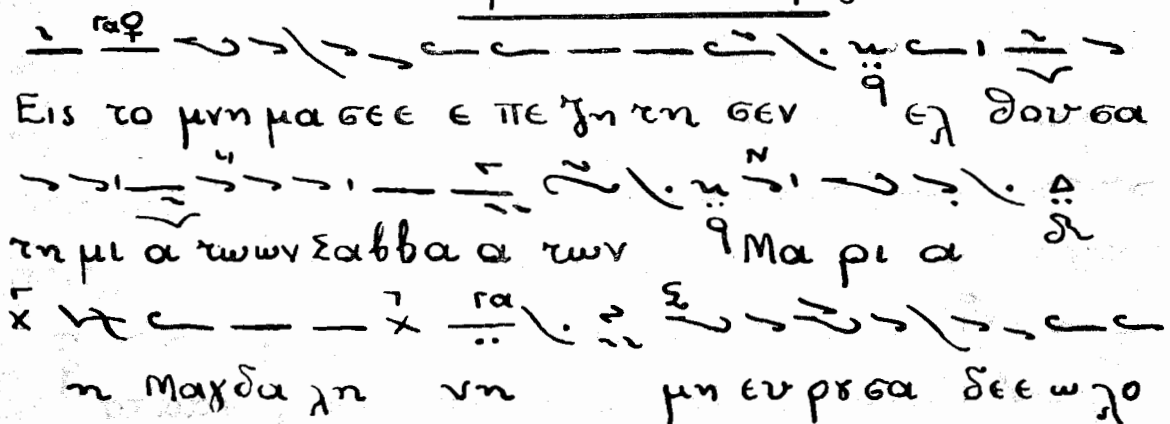 Εις το μνη μα σεε ε πε ζη τη σεν ελ θου σα
τη μι α τωων Σαββα α των Μα ρι α
η Μαγδα λη νη μη ευ ρȣ σα δεε ω λο